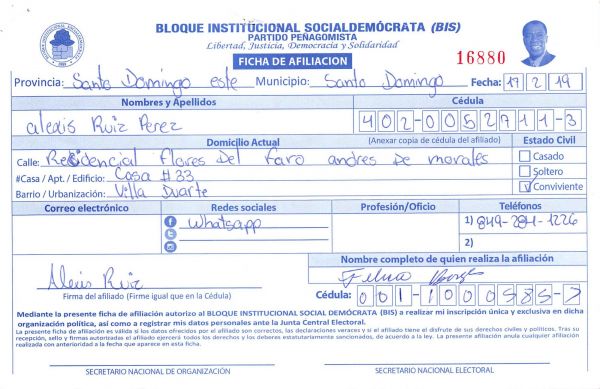 BLOQUE INSTITUCIONAL SOCIALDEMÓCRATA (BIS)
PARTIDO PEÑAGOMISTA
Libertad, Justicia, Democracia y Solidaridad
FICHA DE AFILIACION
16880
Provincia: Santo Domingo este Municipio: Santo Domingo Fecha: 17 2 19
Nombres y Apellidos Cédula
alexis Ruiz Perez 402-0052711-3
Domicilio Actual (Anexar copia de cédula del afiliado) Estado Civil
Calle: Recidencial flores Del faro andres De morales Casado
#Casa / Apt. / Edificio: Casa #33 Soltero
Barrio / Urbanización: Villa Duarte Conviviente
Correo electrónico Redes sociales Profesión/Oficio Teléfonos
Whatsapp 1) 849-284-1226
2)
Nombre completo de quien realiza la afiliación
Alexis Ruiz
Firma del afiliado (Firme igual que en la Cédula) Cédula: 001-1000585-7
Mediante la presente ficha de afiliación autorizo al BLOQUE INSTITUCIONAL SOCIAL DEMÓCRATA (BIS) a realizar mi inscripción única y exclusiva en dicha
organización política, así como a registrar mis datos personales ante la Junta Central Electoral.
La presente ficha de afiliación es válida si los datos ofrecidos por el afiliado son correctos, las declaraciones veraces y si el afiliado tiene el disfrute de sus derechos civiles y políticos. Tras su
recepción, sello y firmas autorizadas el afiliado ejercerá todos los derechos y los deberes estatutariamente sancionados, de acuerdo a la ley. La presente afiliación anula cualquier afiliación
realizada con anterioridad a la fecha que aparece en esta ficha.
SECRETARIO NACIONAL DE ORGANIZACIÓN SECRETARIO NACIONAL ELECTORAL